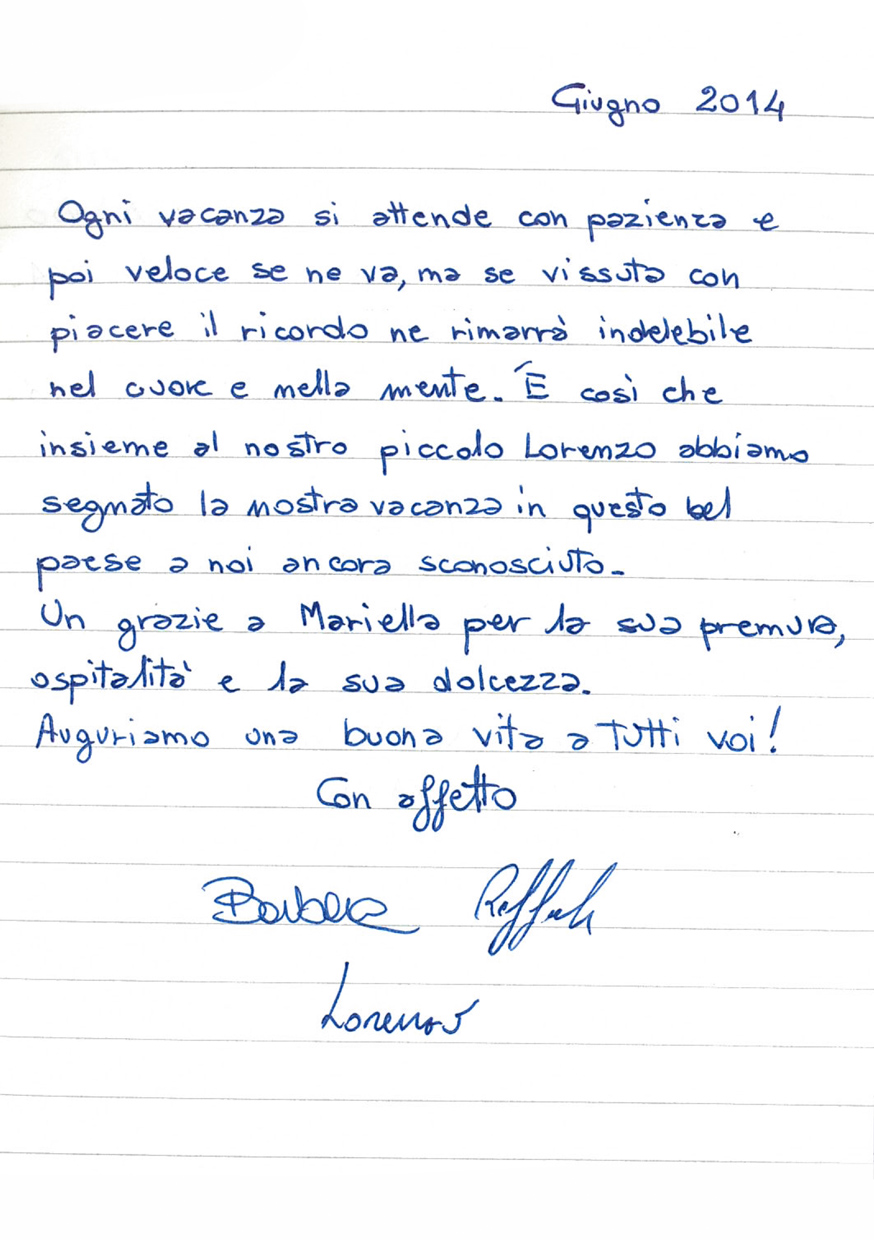 Giugno 2014
Ogni vacanza si attende con pazienza e
poi veloce se ne va, ma se vissuta con
piacere il ricordo ne rimarrà indelebile
nel cuore e nella mente. È così che
insieme al nostro piccolo Lorenzo abbiamo
segnato la nostra vacanza in questo bel
paese a noi ancora sconosciuto.
Un grazie a Mariella per la sua premura,
ospitalità e la sua dolcezza.
Auguriamo una buona vita a tutti voi!
Con affetto
Barbara Raffaele
Lorenzo